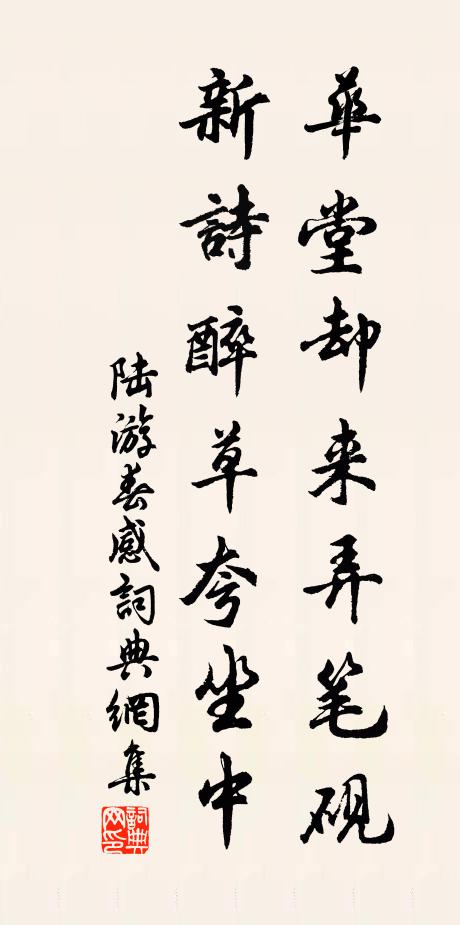 華堂却来弄笔硯
新詩醉草夸坐中
陆游春感詞典網集
詞典网印